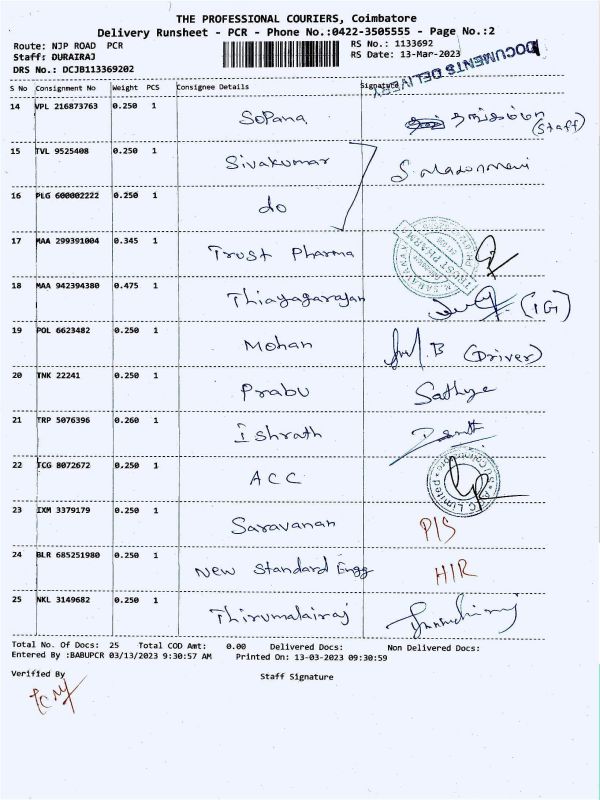 THE PROFESSIONAL COURIERS, Coimbatore
Delivery Runsheet - PCR - Phone No.:0422-3505555 - Page No.:2
Route: NJP ROAD PCR RS No.: 1133692
Staff: DURAIRAJ RS Date: 13-Mar-2023
DRS No.: DCJB113369202
DOCUMENTS DELIVERY
S No Consignment No Weight PCS Consignee Details Signature
14 VPL 216873763 0.250 1 Sopana (Staff)
15 TVL 9525408 0.250 1 Sivakumar
16 PLG 600002222 0.250 1 do
17 MAA 299391004 0.345 1 Trust Pharma
18 MAA 942394380 0.475 1 Thiayagarajan (IG)
19 POL 6623482 0.250 1 Mohan B (Driver)
20 TNK 22241 0.250 1 Prabu Sathya
21 TRP 5076396 0.260 1 Ishrath
22 TCG 8072672 0.250 1 ACC
23 IXM 3379179 0.250 1 Saravanan P/S
24 BLR 685251980 0.250 1 New Standard Engg HIR
25 NKL 3149682 0.250 1 Thirumalairaj
Total No. Of Docs: 25 Total COD Amt: 0.00 Delivered Docs: Non Delivered Docs:
Entered By :BABUPCR 03/13/2023 9:30:57 AM Printed On: 13-03-2023 09:30:59
Verified By Staff Signature